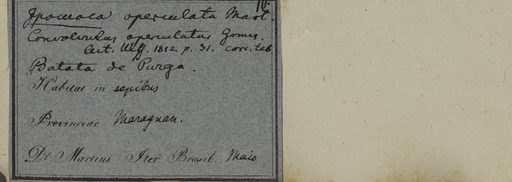 Ipomoea operculata Mart.
Convolvulus operculatus Gomes.
1812. p. 31.
Batata de Purga.
Habitat in sepibus
Provinciae Maragnan.
Dr. Martius Iter Brasil. Maio